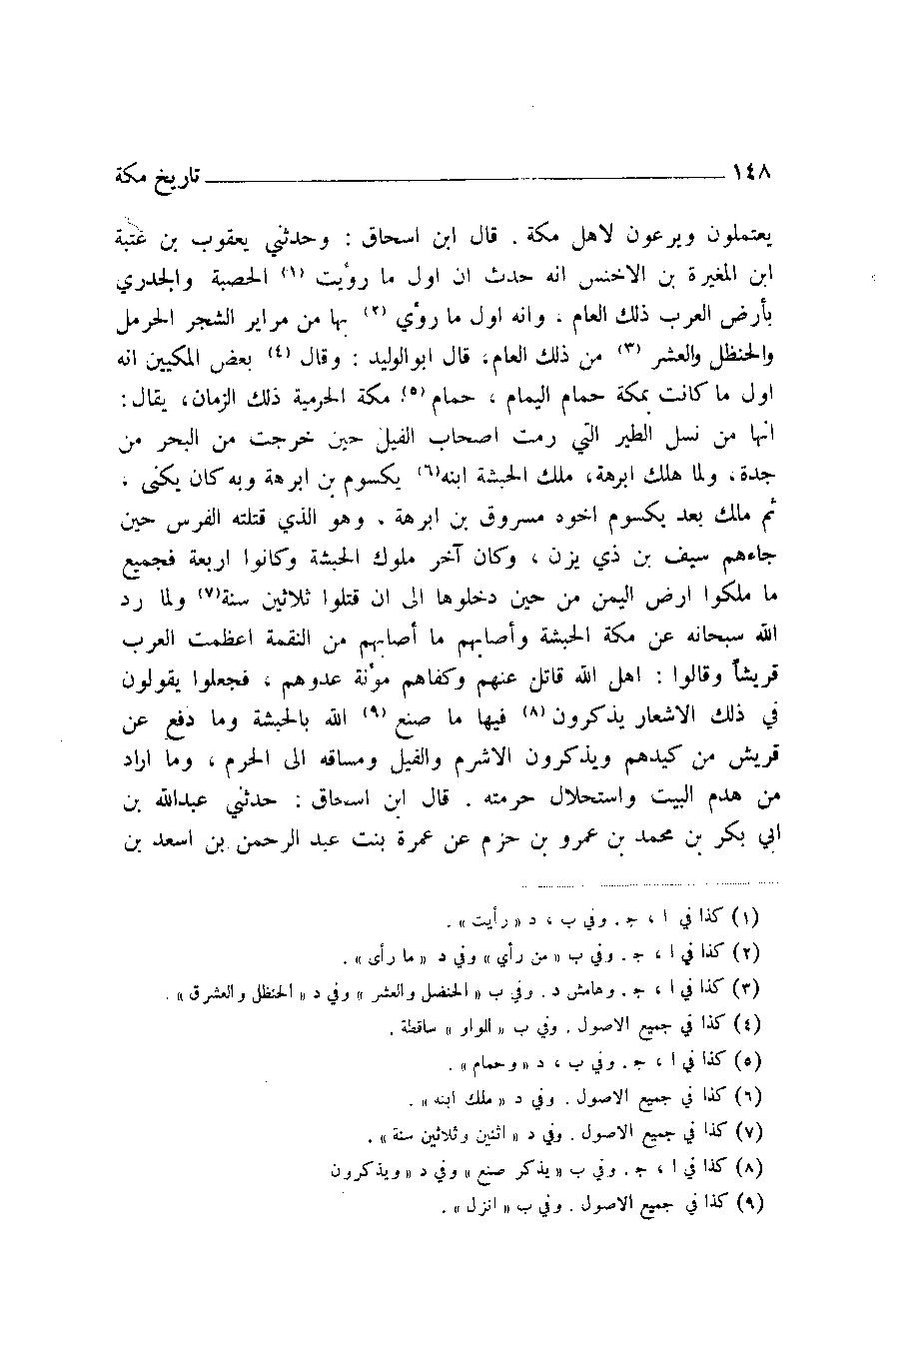 ١٤٨ تاريخ مكة
يعتملون ويرعون لاهل مكة . قال ابن اسحاق : وحدثني يعقوب بن عتبة
ابن المغيرة بن الاخنس انه حدث ان اول ما رؤيت (١) الحصبة والجدري
بأرض العرب ذلك العام ، وانه اول ما رؤي (٢) بها من مراير الشجر الحرمل
والحنظل والعشر (٣) من ذلك العام، قال ابو الوليد : وقال (٤) بعض المكيين انه
اول ما كانت بمكة حمام اليمام ، حمام (٥) مكة الحرمية ذلك الزمان، يقال :
انها من نسل الطير التي رمت اصحاب الفيل حين خرجت من البحر من
جدة، ولما هلك ابرهة، ملك الحبشة ابنه(٦) يكسوم بن ابرهة وبه كان يكنى ،
ثم مالك بعد يكسوم اخوه مسروق بن ابرهة ، وهو الذي قتلته الفرس حين
جاءهم سيف بن ذي يزن ، وكان آخر ملوك الحبشة وكانوا اربعة فجميع
ما ملكوا ارض اليمن من حين دخلوها الى ان قتلوا ثلاثين سنة(٧) ولما رد
الله سبحانه عن مكة الحبشة وأصابهم ما أصابهم من النقمة اعظمت العرب
قريشاً وقالوا : اهل الله قاتل عنهم وكفاهم مؤنة عدوهم ، فجعلوا يقولون
في ذلك الاشعار يذكرون (٨) فيها ما صنع (٩) الله بالحبشة وما دفع عن
قريش من كيدهم ويذكرون الاشرم والفيل ومساقه الى الحرم ، وما اراد
من هدم البيت واستحلال حرمته . قال ابن اسحاق : حدثني عبدالله بن
ابي بكر بن محمد بن عمرو بن حزم عن عمرة بنت عبد الرحمن بن اسعد بن
(١) كذا في ا ، ج . وفي ب ، د « رأيت » .
(٢) كذا في ا ، ج . وفي ب « من رأي » وفي د « ما رأى » .
(٣) كذا في ا ، ج . وهامش د . وفي ب « الحنضل والعشر » وفي د « الحنظل والعشرق » .
(٤) كذا في جميع الاصول . وفي ب « الواو » ساقطة .
(٥) كذا في ا ، ج . وفي ب ، د « وحمام » .
(٦) كذا في جميع الاصول . وفي د « ملك ابنه » .
(٧) كذا في جميع الاصول . وفي د « اثنين وثلاثين سنة » .
(٨) كذا في ا ، ج . وفي ب « يذكر صنع » وفي د « ويذكرون
(٩) كذا في جميع الاصول . وفي ب « انزل » .